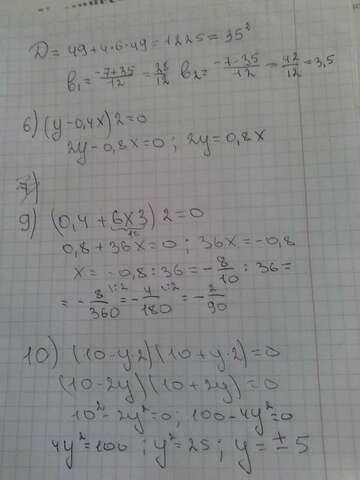 D = 49+4·6·49 = 1225 = 35²
b₁ = (-7+35)/12 = 28/12 b₂ = (-7-35)/12 = 42/12 = 3,5
6) (y-0,4x)2=0
2y-0,8x=0; 2y=0,8x
7)
9) (0,4+6x3)2=0
0,8+36x=0; 36x=-0,8
x = -0,8:36 = -8/10 : 36 =
= -8/360 = -4/180 = -2/90
10) (10-y·2)(10+y·2)=0
(10-2y)(10+2y)=0
10²-2y²=0; 100-4y²=0
4y²=100; y²=25; y=±5